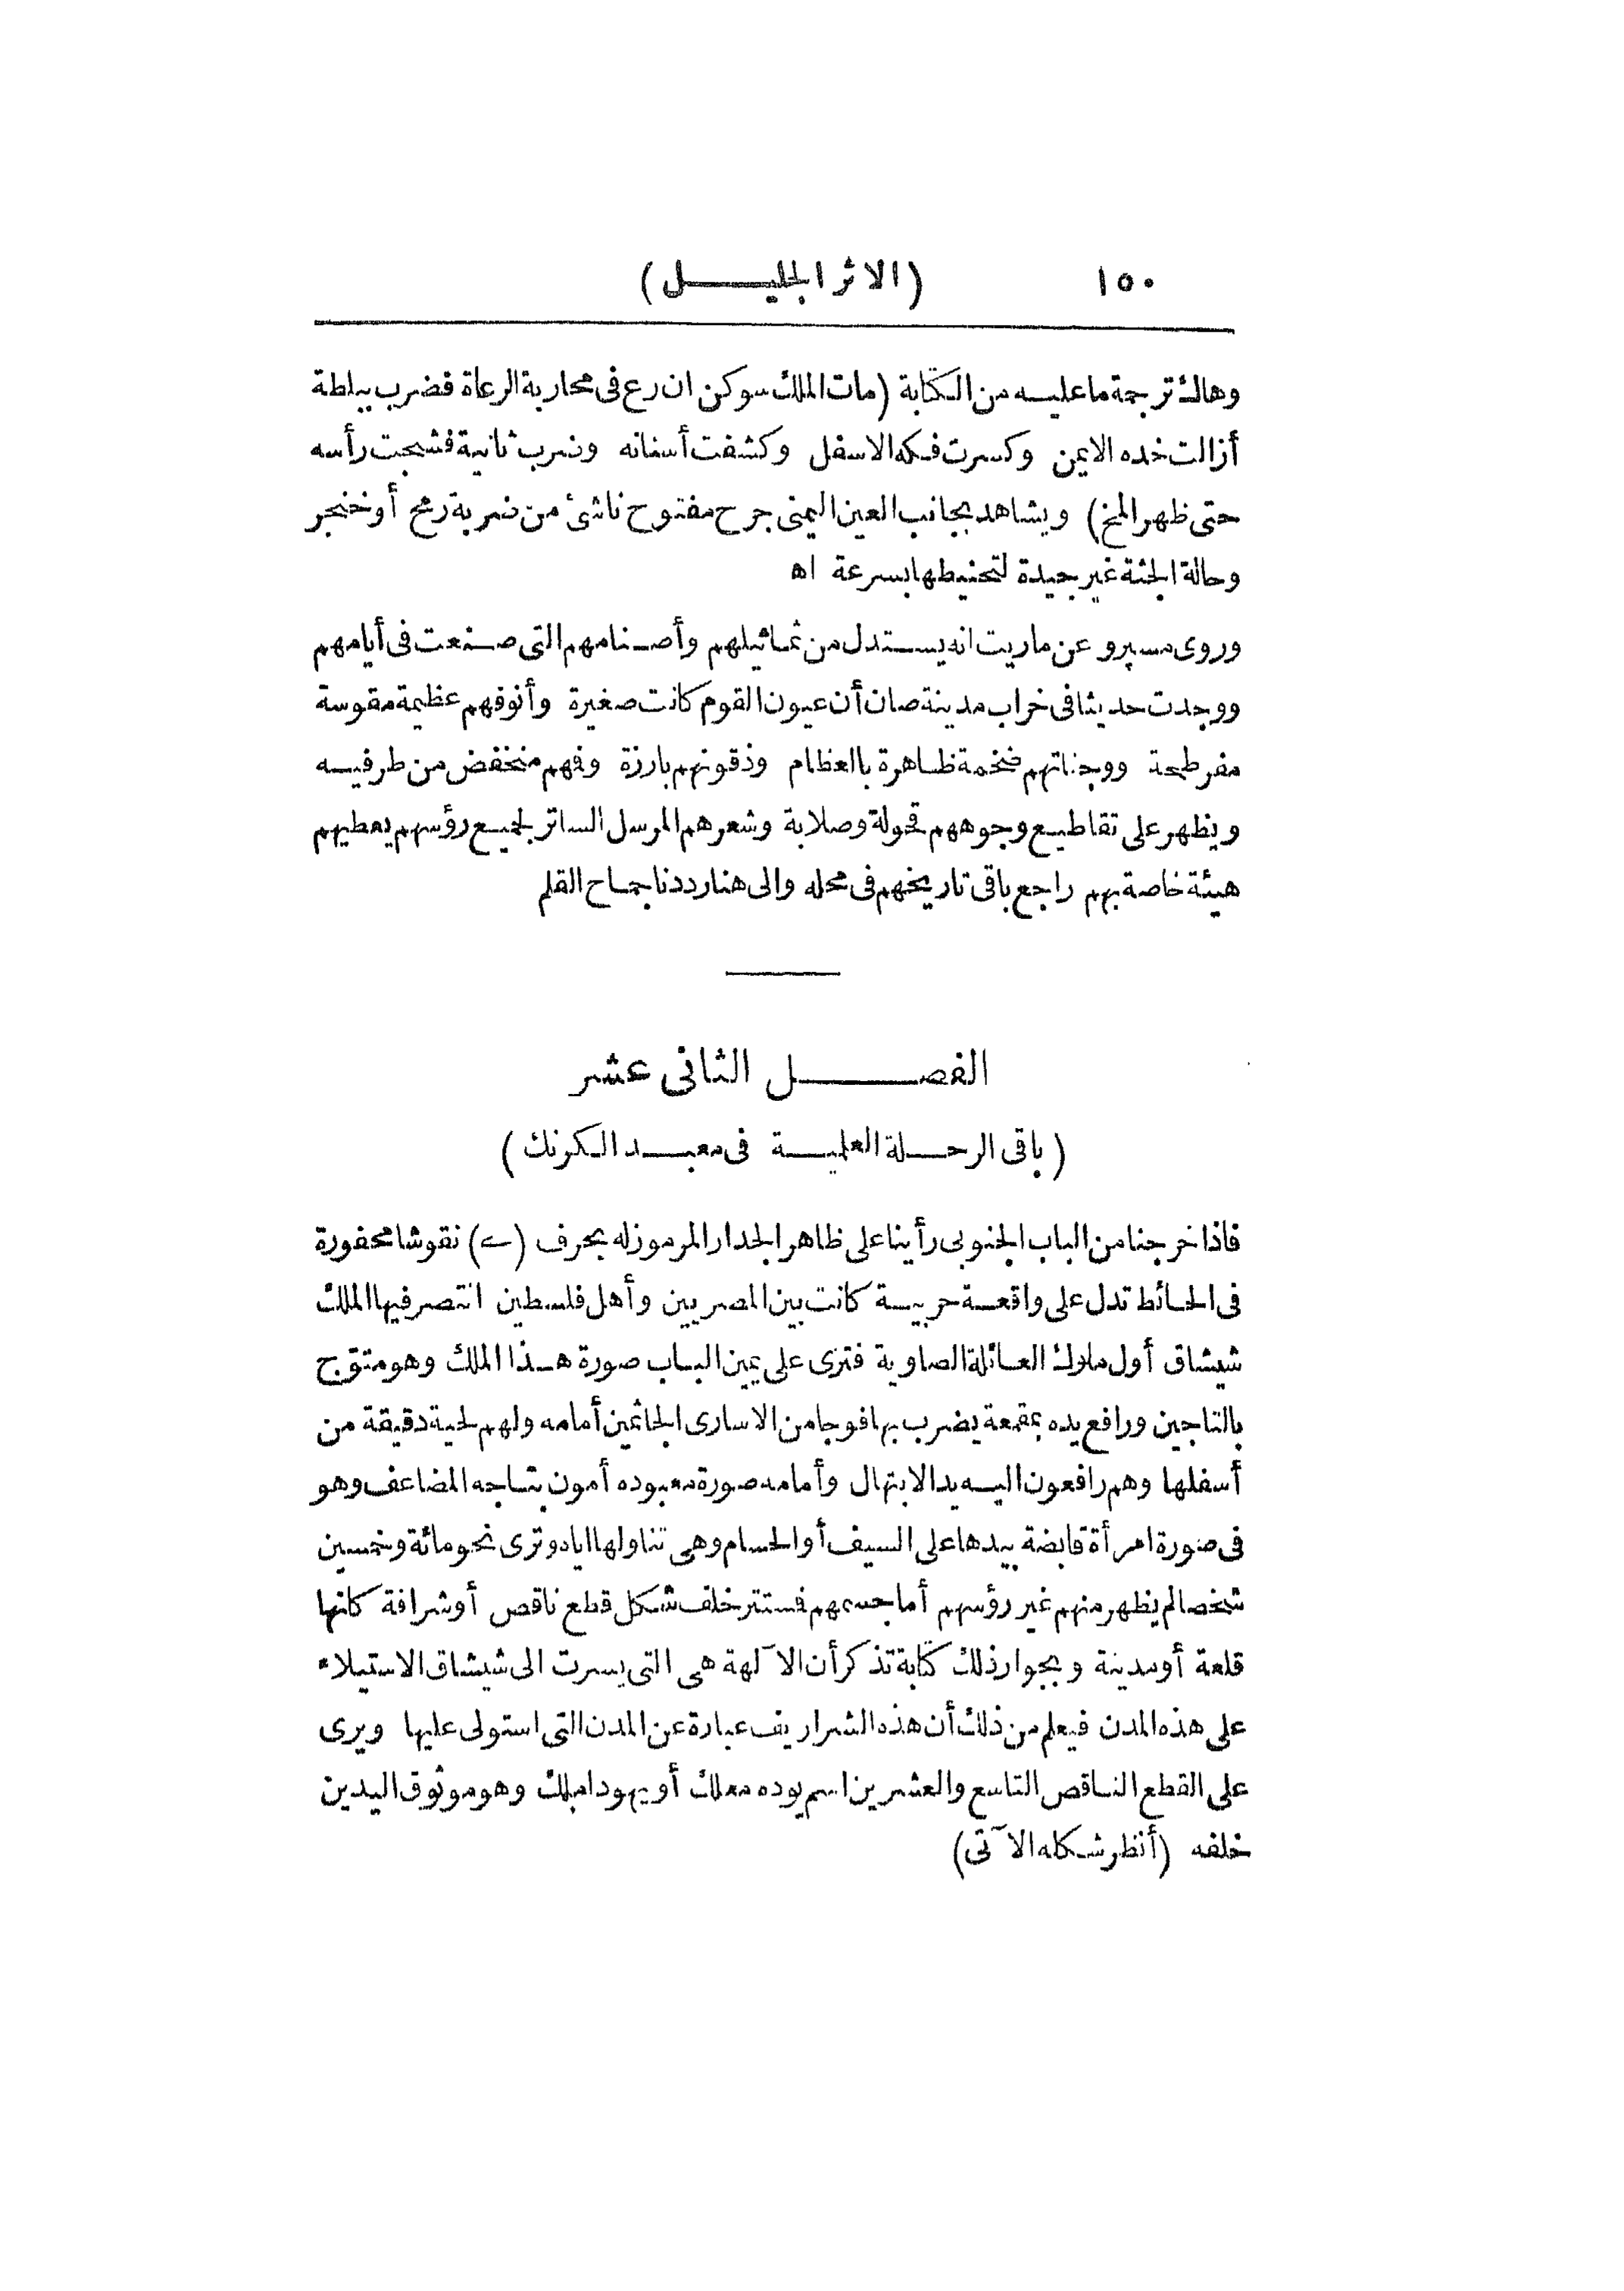 ١٥٠ (الاثر الجليل)
وهاك ترجمة ما عليه من الكتابة (مات الملك سوكن ان رع فى محاربة الرعاة فضرب ببلطة
أزالت خده الايمن وكسرت فكه الاسفل وكشفت أسنانه وضرب ثانية فشجت رأسه
حتى ظهر المخ) ويشاهد بجانب العين اليمنى جرح مفتوح ناشئ من ضربة رمح أو خنجر
وحالة الجثة غير جيدة لتحنيطها بسرعة اه
وروى مسپرو عن ماريت انه يستدل من تماثيلهم وأصنامهم التى صنعت فى أيامهم
ووجدت حديثا فى خراب مدينة صان أن عيون القوم كانت صغيرة وأنوفهم عظيمة مقوسة
مفرطحة ووجناتهم ضخمة ظاهرة بالعظام وذقونهم بارزة وفهم منخفض من طرفيه
ويظهر على تقاطيع وجوههم قحولة وصلابة وشعرهم المرسل الساتر لجميع رؤسهم يعطيهم
هيئة خاصة بهم راجع باقى تاريخهم فى محله والى هنا رددنا جماح القلم
الفصل الثانى عشر
(باقى الرحلة العلمية فى معبد الكرنك)
فاذا خرجنا من الباب الجنوبى رأينا على ظاهر الجدار المرموز له بحرف (ے) نقوشا محفورة
فى الحائط تدل على واقعة حربية كانت بين المصريين وأهل فلسطين انتصر فيها الملك
شيشاق أول ملوك العائلة الصاوية فترى على يمين الباب صورة هذا الملك وهو متوّج
بالتاجين ورافع يده بمقمعة يضرب بها فوجا من الاسارى الجاثمين أمامه ولهم لحية دقيقة من
أسفلها وهم رافعون اليه يد الابتهال وأمامه صورة معبوده أمون بتاجه المضاعف وهو
فى صورة امرأة قابضة بيدها على السيف أو الحسام وهى تناولها اياد وترى نحو مائة وخمسين
شخصا لم يظهر منهم غير رؤسهم أما جسمهم فستتر خلف شكل قطع ناقص أو شرافة كانها
قلعة أو مدينة وبجوار ذلك كتابة تذكر أن الآلهة هى التى يسرت الى شيشاق الاستيلاء
على هذه المدن فيعلم من ذلك أن هذه الشراريف عبارة عن المدن التى استولى عليها ويرى
على القطع الناقص التاسع والعشرين اسم يوده معلك أو يهودا ملك وهو موثوق اليدين
خلفه (أنظر شكله الآتى)